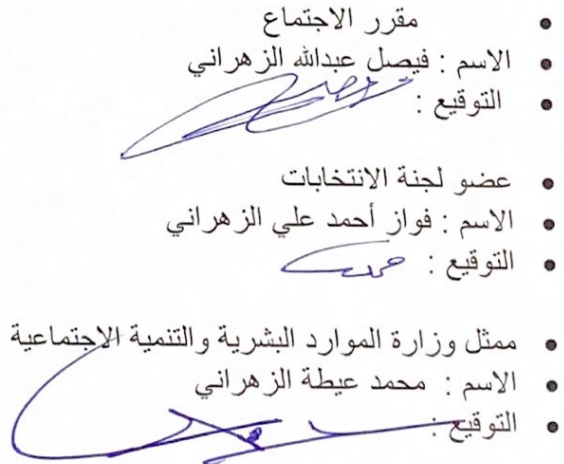 • مقرر الاجتماع
• الاسم : فيصل عبدالله الزهراني
• التوقيع :
• عضو لجنة الانتخابات
• الاسم : فواز أحمد علي الزهراني
• التوقيع :
• ممثل وزارة الموارد البشرية والتنمية الاجتماعية
• الاسم : محمد عيطة الزهراني
• التوقيع :